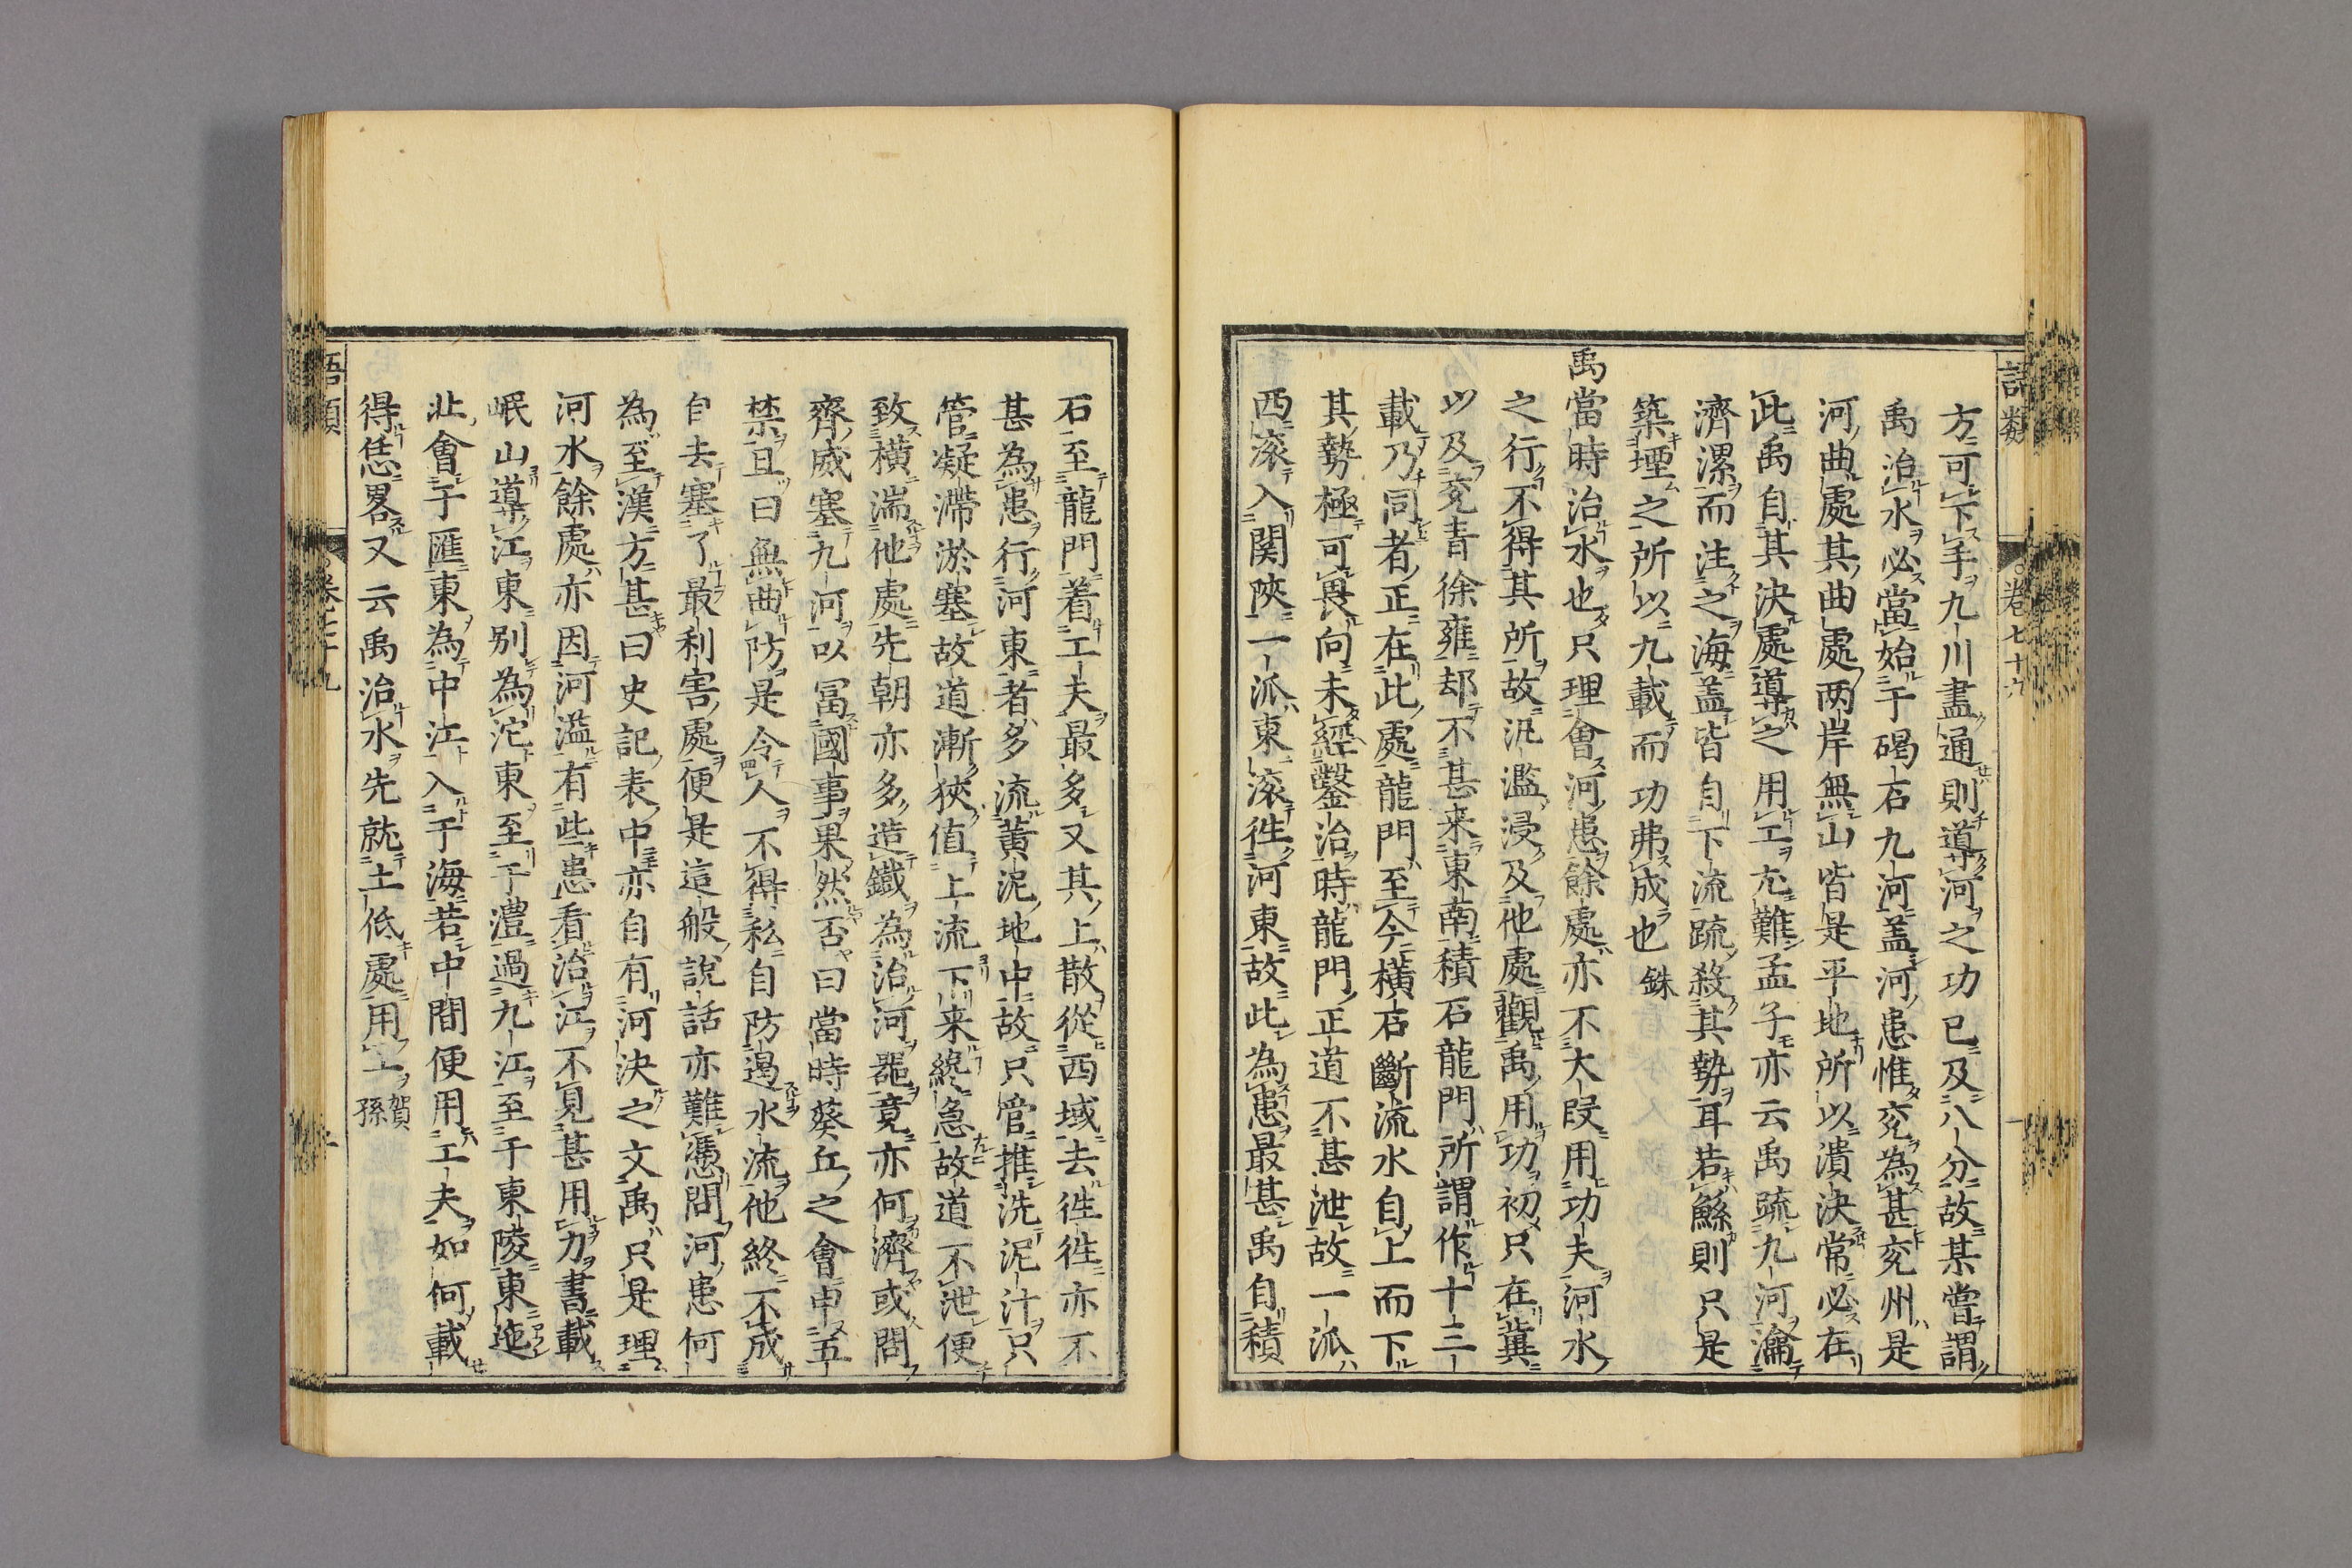 語類
卷七十九
方可下手九川盡通則導河之功已及八分故某嘗謂
禹治水必當始于碣石九河盖河患惟兖為甚兖州是
河曲處其曲處两岸無山皆是平地所以潰決常必在
此禹自其決處導之用工尤難孟子亦云禹疏九河瀹
濟漯而注之海盖皆自下流疏殺其勢耳若鯀則只是
築堙之所以九載而功弗成也銖
禹當時治水也只理會河患餘處亦不大段用功夫河水
之行不得其所故汎濫浸及他處觀禹用功初只在冀
以及兖青徐雍却不甚来東南積石龍門所謂作十三
載乃同者正在此處龍門至今橫石斷流水自上而下
其勢極可畏向未經鑿治時龍門正道不甚泄故一派
西滚入関陝一派東滚徃河東故此為患最甚禹自積
石至龍門着工夫最多又其上散從西域去徃徃亦不
甚為患行河東者多流黃泥地中故只管推洗泥汁只
管凝滯淤塞故道漸狹值上流下来纔急故道不泄便
致橫湍他處先朝亦多造鐵為治河噐竟亦何濟或問
齊威塞九河以冨國事果然否曰當時葵丘之會申五
禁且曰無曲防是令人不得私自防遏水流他終不成
自去塞了最利害處便是這般說話亦難憑問河患何
為至漢方甚曰史記表中亦自有河決之文禹只是理
河水餘處亦因河溢有些患看治江不見甚用力書載
岷山導江東别為沱東至于澧過九江至于東陵東迆
北會于匯東為中江入于海若中間便用工夫如何載
得恁畧又云禹治水先就土低處用工賀孫
語類
卷七十九